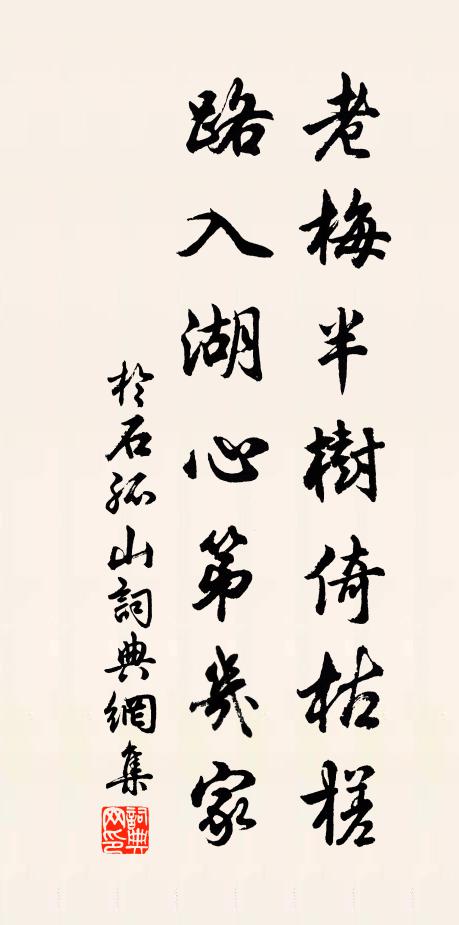 老梅半樹倚枯槎
路入湖心第幾家
於石孤山詞典網集
詞典網印